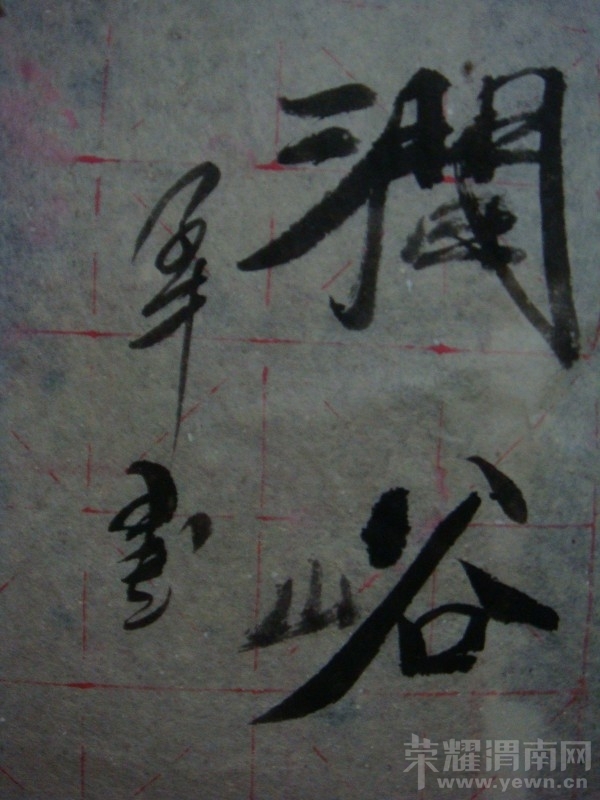 潤峪
军書
荣耀渭南网
www.yewn.cn